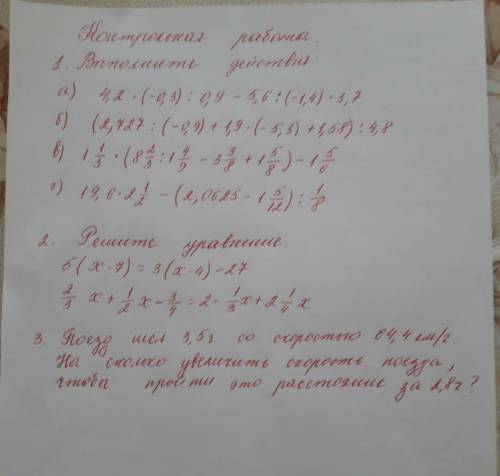 Контрольная работа.
1. Выполните действия:
а) 4,2 · (-0,3) : 0,9 - 5,6 : (-1,4) · 3,7
б) (2,727 : (-0,9) + 1,9 · (-5,3) + 1,58) : 4,8
в) 1 1/3 · (8 2/3 : 1 4/9 - 3 3/8 + 1 5/8) - 1 5/6
г) 19,6 · 2 1/2 - (2,0625 - 1 5/12) : 1/8
2. Решите уравнение.
5(x-7) = 3(x-4) - 27
2/3 x + 1/2 x - 3/4 = 2 - 1/3 x + 2 1/4 x
3. Поезд шел 3,5 г со скоростью 64,4 км/г.
На сколько увеличить скорость поезда,
чтобы пройти это расстояние за 2,8 г?